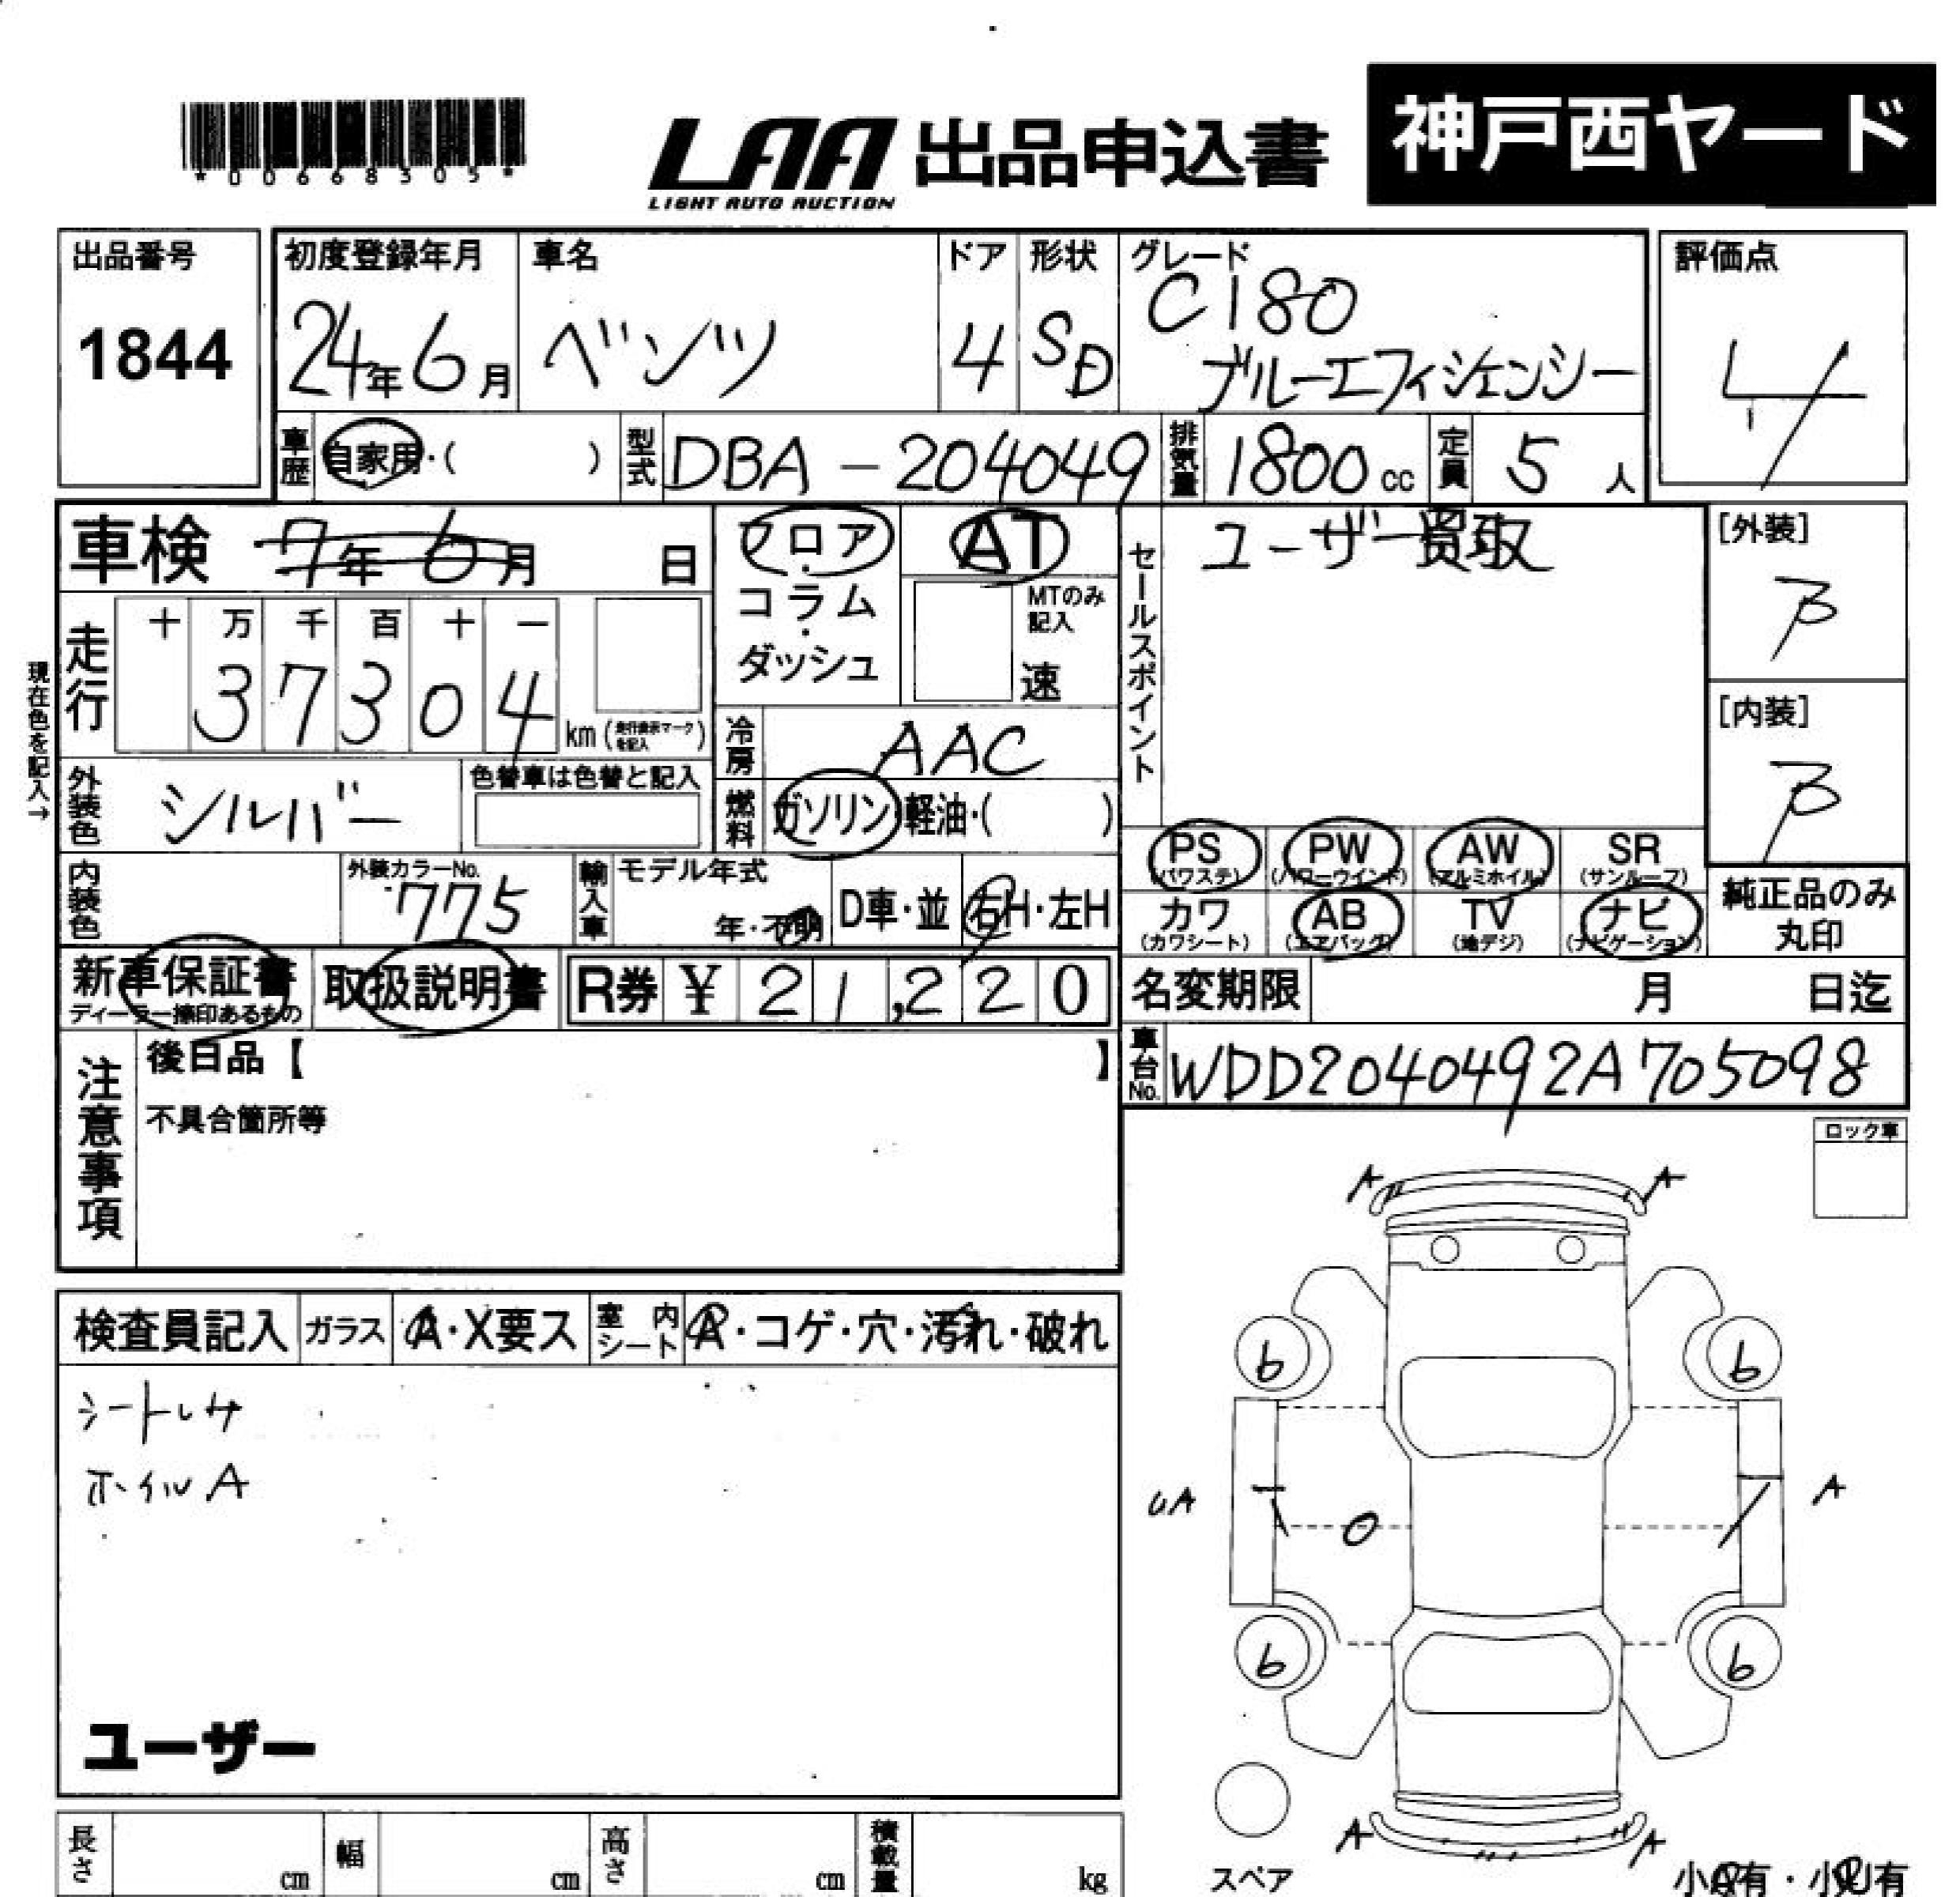 *00668305*
LAA 出品申込書
LIGHT AUTO AUCTION
神戸西ヤード
出品番号
1844
初度登録年月
24年6月
車名
ベンツ
ドア
4
形状
SD
グレード
C180
ブルーエフィシェンシー
評価点
4
車歴 自家用・( )
型式 DBA-204049
排気量 1800cc
定員 5人
車検 7年6月 日
フロア・コラム・ダッシュ
AT
MTのみ記入
速
セールスポイント
ユーザー買取
[外装]
B
[内装]
B
現在色を記入→
走行
十 万 千 百 十 一
3 7 3 0 4
km(走行表示マークを記入)
冷房 AAC
外装色 シルバー
色替車は色替と記入
燃料 ガソリン・軽油・( )
PS (パワステ)
PW (パワーウインド)
AW (アルミホイル)
SR (サンルーフ)
カワ (カワシート)
AB (エアバッグ)
TV (地デジ)
ナビ (ナビゲーション)
純正品のみ
丸印
内装色
外装カラーNo.
775
輸入車
モデル年式
年・不明
D車・並
右H・左H
新車保証書
ディーラー捺印あるもの
取扱説明書
R券 ¥ 21,220
名変期限 月 日迄
車台No. WDD2040492A705098
注意事項
後日品【 】
不具合箇所等
ロック車
検査員記入 ガラス A・X要ス 室内シート A・コゲ・穴・汚れ・破れ
シートレサ
ホイルA
ユーザー
A A
6 6
UA A
6 6
A A
スペア
長さ cm
幅 cm
高さ cm
積載量 kg